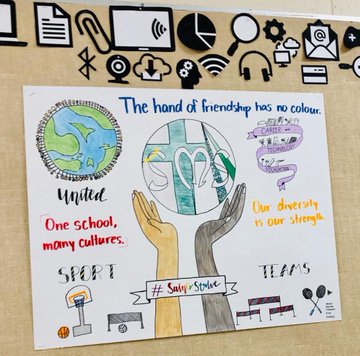 The hand of friendship has no colour.
SMS
CAREER
AND
TECHNOLOGY
FOUNDATIONS
United
One school,
many cultures.
Our diversity
is our strength.
SPORT
TEAMS